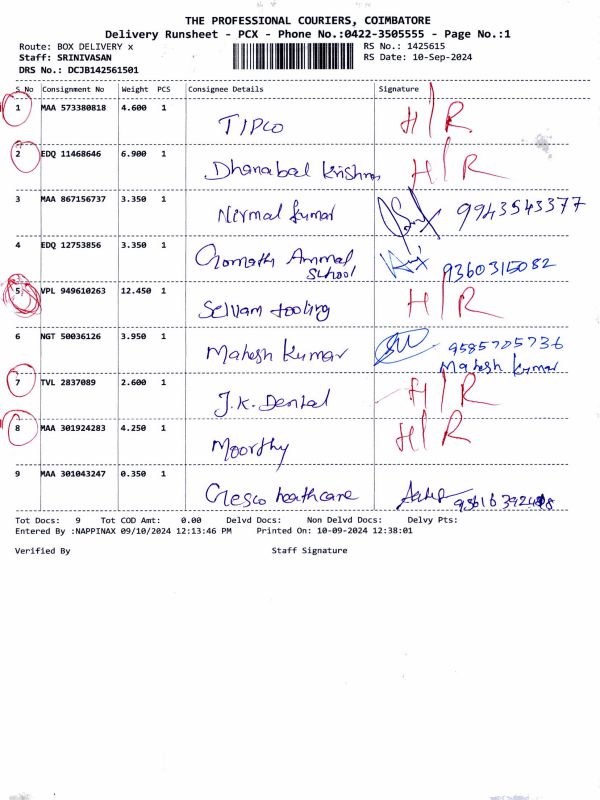 THE PROFESSIONAL COURIERS, COIMBATORE
Delivery Runsheet - PCX - Phone No.:0422-3505555 - Page No.:1
Route: BOX DELIVERY x RS No.: 1425615
Staff: SRINIVASAN RS Date: 10-Sep-2024
DRS No.: DCJB142561501
S.No Consignment No Weight PCS Consignee Details Signature
1 MAA 573380818 4.600 1 TIPCO H/R
2 EDQ 11468646 6.900 1 Dhanabal Krishnan H/R
3 MAA 867156737 3.350 1 Nirmal Kumar 9943543377
4 EDQ 12753856 3.350 1 Ammal School 9360315082
5 VPL 949610263 12.450 1 Selvam tooling H/R
6 NGT 50036126 3.950 1 Mahesh Kumar 9585705736
Mahesh Kumar
7 TVL 2837089 2.600 1 J.K. Dental H/R
8 MAA 301924283 4.250 1 Moorthy H/R
9 MAA 301043247 0.350 1 Cresco heathcare
Tot Docs: 9 Tot COD Amt: 0.00 Delvd Docs: Non Delvd Docs: Delvy Pts:
Entered By :NAPPINAX 09/10/2024 12:13:46 PM Printed On: 10-09-2024 12:38:01
Verified By Staff Signature